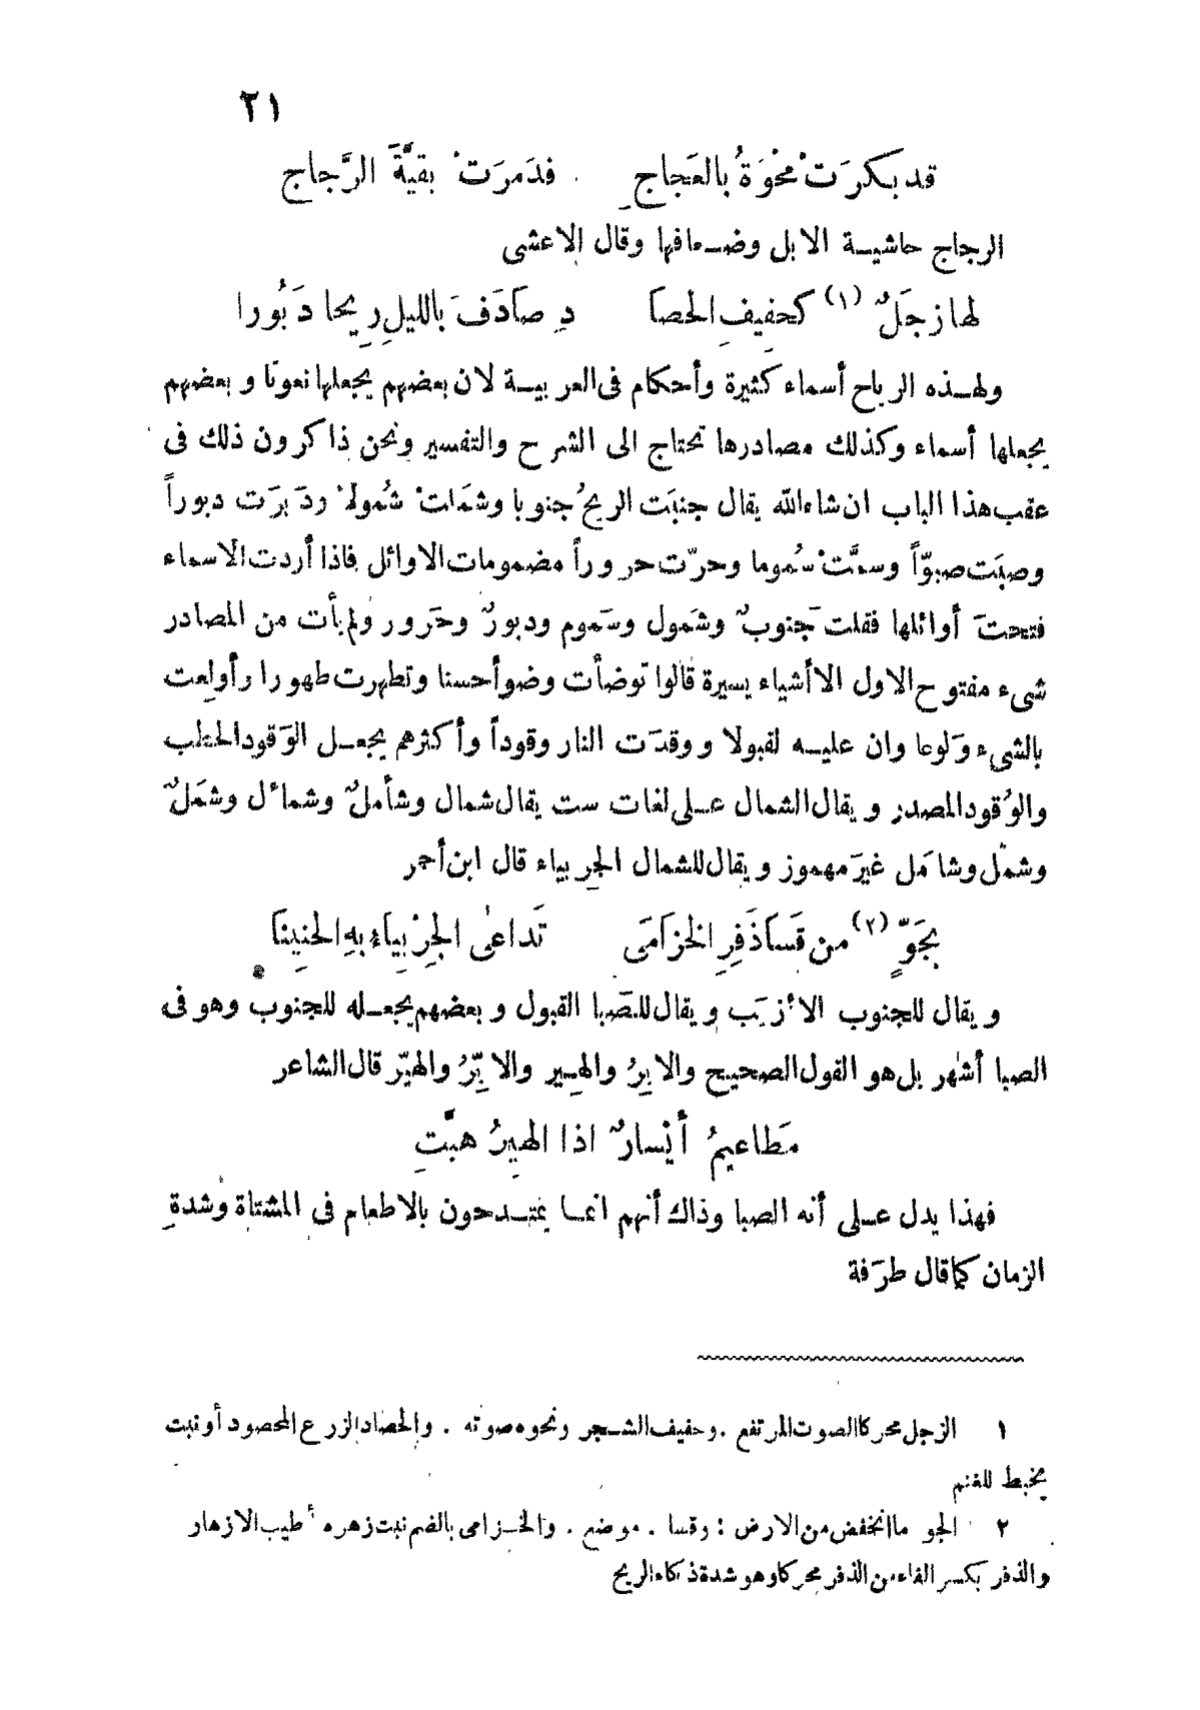 ٢١
قد بكرَتْ مَحْوَةُ بالعَجاجِ فدَمرَتْ بقيَّةَ الرَّجاج
الرجاج حاشية الابل وضعافها وقال الاعشى
لها زجَلٌ (١) كحَفيفِ الحصَا دِ صَادَفَ بالليلِ رِيحا دَبُورا
ولهذه الرياح أسماء كثيرة وأحكام فى العربية لان بعضهم يجعلها نعوتا وبعضهم
يجعلها أسماء وكذلك مصادرها تحتاج الى الشرح والتفسير ونحن ذاكرون ذلك فى
عقب هذا الباب ان شاء الله يقال جنبَت الريحُ جنوبا وشمَلتْ شُمولاً ودَبرَت دبوراً
وصبَت صبوّاً وسمَّتْ سُموما وحرّت حروراً مضمومات الاوائل فاذا أردت الاسماء
فتحتَ أوائلها فقلت جَنوبٌ وشَمول وسَموم ودبورٌ وحَرور ولم يأت من المصادر
شىء مفتوح الاول الا أشياء يسيرة قالوا توضأت وضوأ حسنا وتطهرت طهورا وأولعت
بالشىء وَلوعا وان عليه لقبولا ووقدَت النار وقوداً وأكثرهم يجعل الوَقود الحطب
والوُقود المصدر ويقال الشمال على لغات ست يقال شمال وشأملٌ وشمائل وشمَلٌ
وشمْل وشامَل غيرَ مهموز ويقال للشمال الجربياء قال ابن أحمر
بجَوٍّ (٢) من قَسَا ذَفِرِ الخزَامَى تَداعَى الجِرْبِياءُ بهِ الحنِينَا
ويقال للجنوب الأزيَب ويقال للصَبا القبول وبعضهم يجعله للجنوب وهو فى
الصبا أشهر بل هو القول الصحيح والايرُ والهير والايّرُ والهيّر قال الشاعر
مَطاعيمُ أيْسارٌ اذا الهيرُ هبَّتِ
فهذا يدل على أنه الصبا وذاك أنهم انما يمتدحون بالاطعام فى المشتاة وشدةِ
الزمان كما قال طرَفة
١ الزجل محركا الصوت المرتفع . وحفيف الشجر ونحوه صوته . والحصاد الزرع المحصود أو نبت
يخبط للغنم
٢ الجو ما انخفض من الارض : وقسا . موضع . والخزامى بالضم نبت زهره أطيب الازهار
والذفر بكسر الفاء من الذفر محركا وهو شدة ذكاء الريح